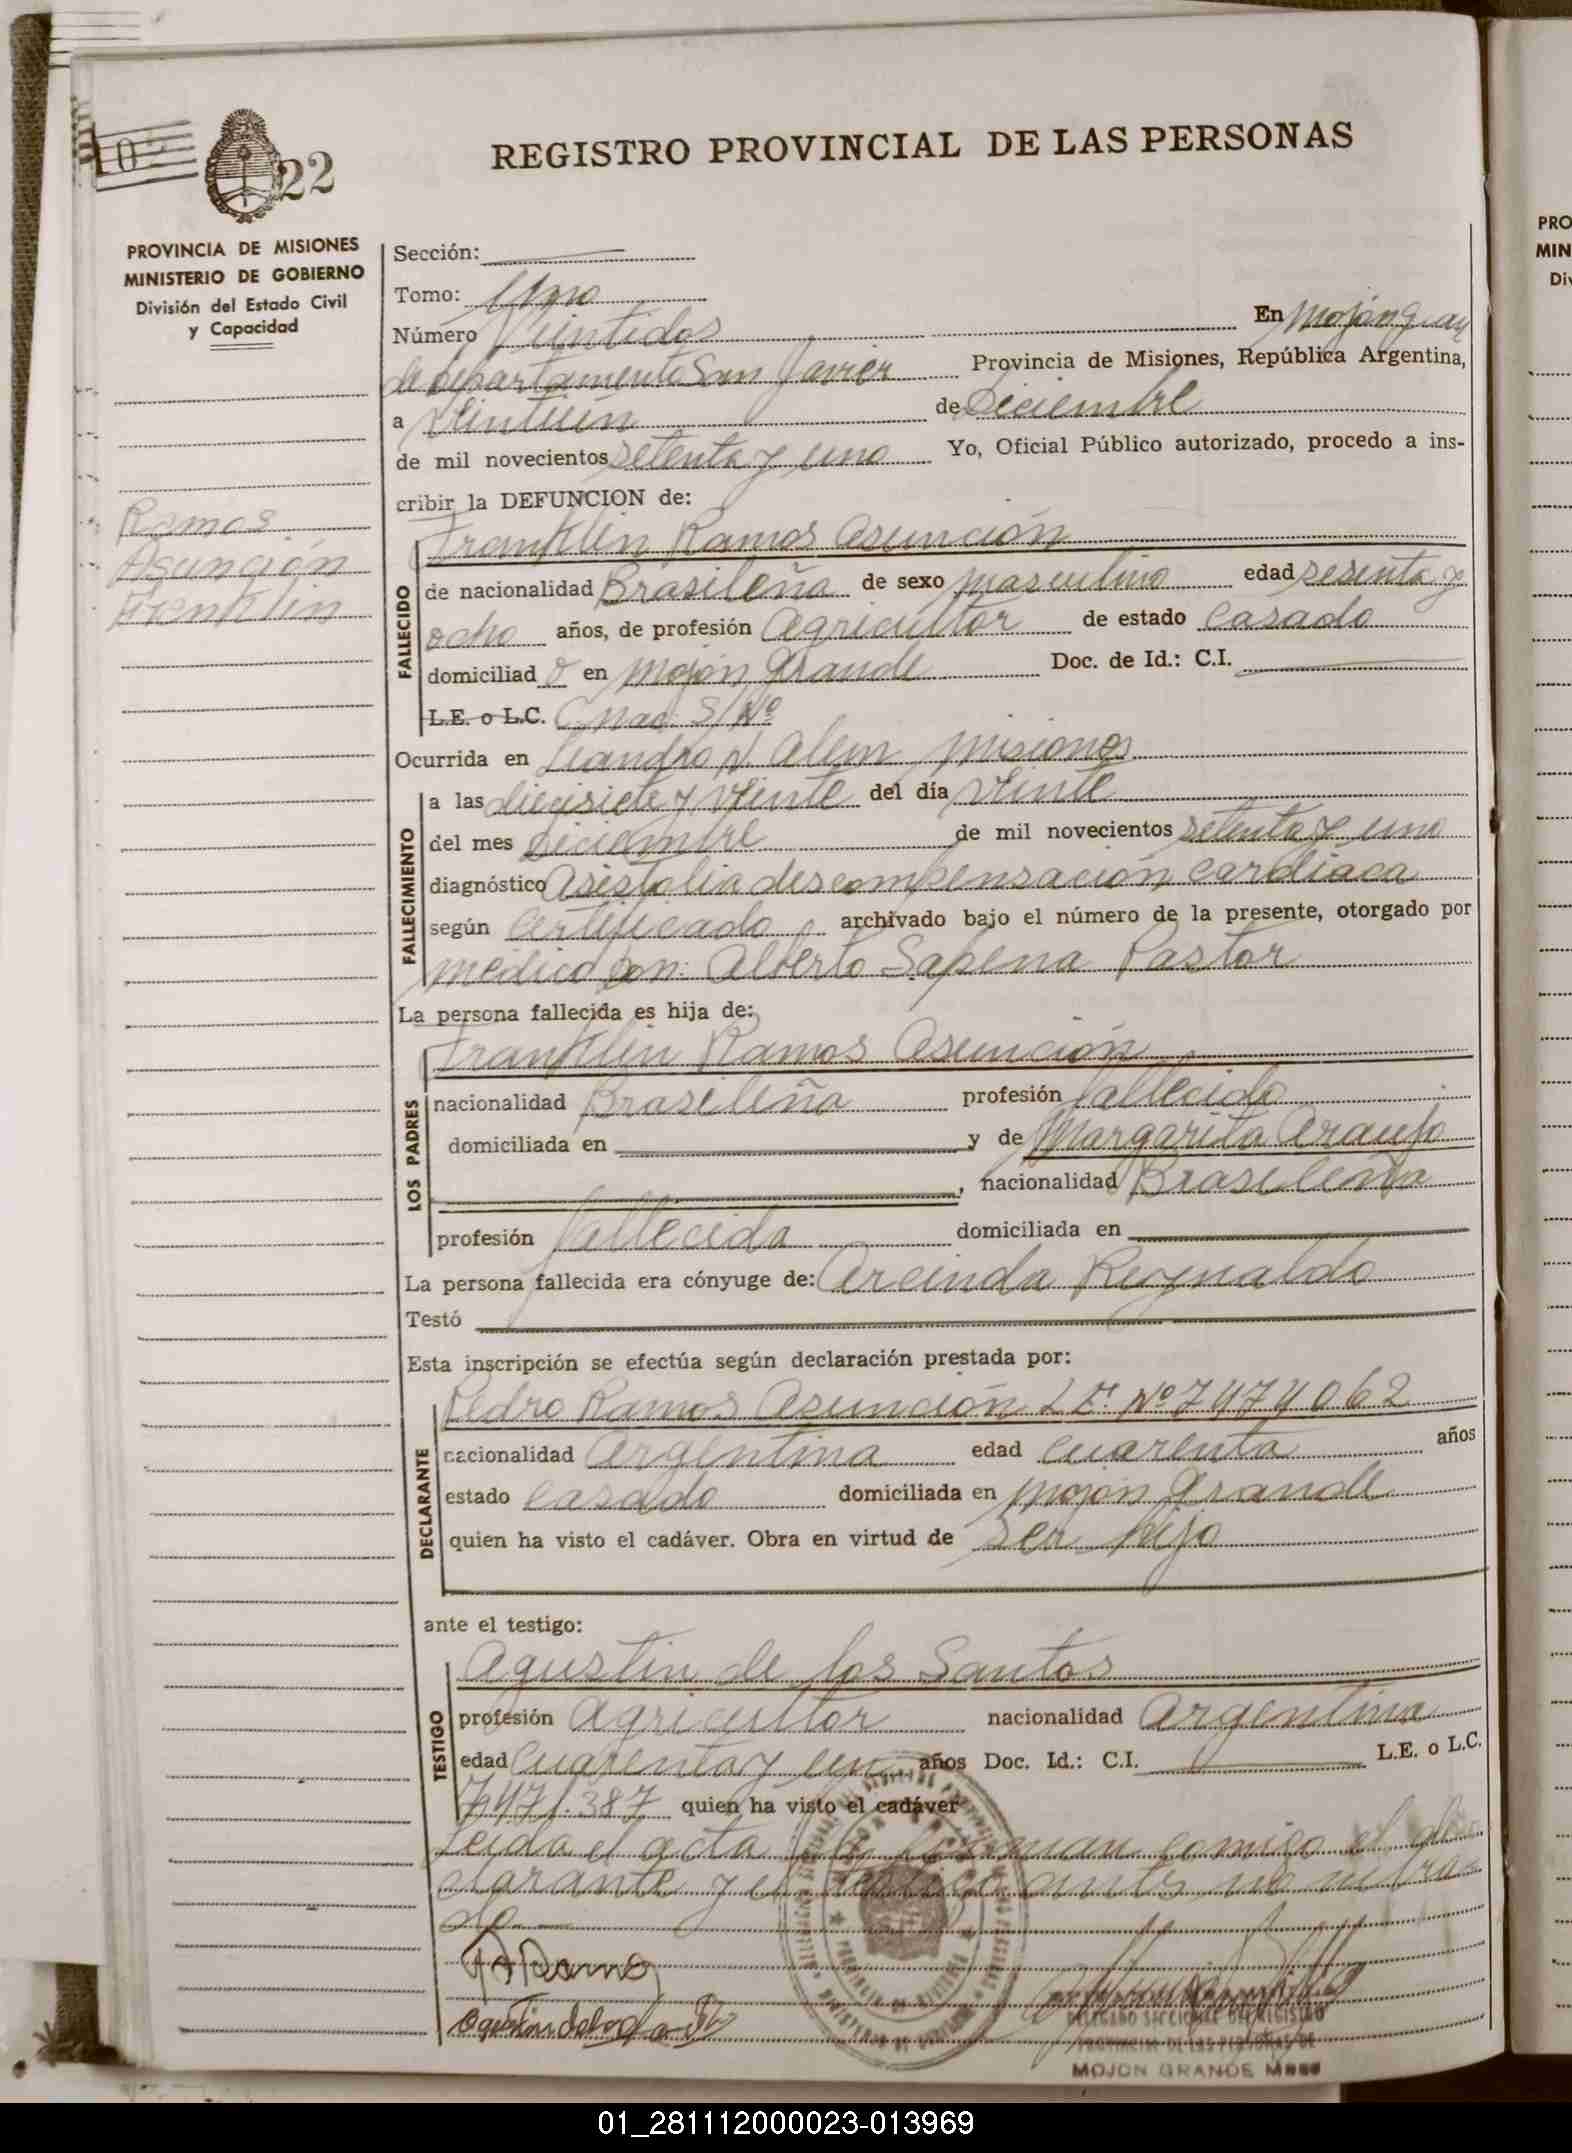 22
REGISTRO PROVINCIAL DE LAS PERSONAS
PROVINCIA DE MISIONES
MINISTERIO DE GOBIERNO
División del Estado Civil
y Capacidad
Ramos
Asunción
Frenklin
Sección:
Tomo: Uno
Número Veintidos En Mojón Gran
de departamento San Javier Provincia de Misiones, República Argentina,
a Veintiun de Diciembre
de mil novecientos setenta y uno Yo, Oficial Público autorizado, procedo a ins-
cribir la DEFUNCION de:
Franklin Ramos Asunción
FALLECIDO
de nacionalidad Brasileña de sexo masculino edad sesenta y
ocho años, de profesión Agricultor de estado casado
domiciliad o en Mojón Grande Doc. de Id.: C.I.
L.E. o L.C. C. Nac. S/Nº
Ocurrida en Leandro N. Alem Misiones
FALLECIMIENTO
a las diecisiete y veinte del día veinte
del mes Diciembre de mil novecientos setenta y uno
diagnóstico Asistolia descompensación cardiaca
según certificado archivado bajo el número de la presente, otorgado por
medico Don: Alberto Sapena Pastor
La persona fallecida es hija de:
Franklin Ramos Asunción
LOS PADRES
nacionalidad Brasileña profesión fallecido
domiciliada en y de Margarita Araujo
, nacionalidad Brasileña
profesión fallecida domiciliada en
La persona fallecida era cónyuge de: Arcinda Reynaldo
Testó
Esta inscripción se efectúa según declaración prestada por:
Pedro Ramos Asunción L.E. Nº 7474062
DECLARANTE
nacionalidad Argentina edad cuarenta años
estado casado domiciliada en Mojón Grande
quien ha visto el cadáver. Obra en virtud de ser hijo
ante el testigo:
Agustin de los Santos
TESTIGO
profesión Agricultor nacionalidad Argentina
edad cuarenta y un años Doc. Id.: C.I. L.E. o L.C.
7471.387 quien ha visto el cadáver
Leida el acta la firman comigo el de
clarante y el testigo ants
do
P A Ramos
DELEGADO SECCIONAL DEL REGISTRO
PROVINCIAL DE LAS PERSONAS DE
MOJON GRANDE
01_281112000023-013969
PRO
MIN
Div